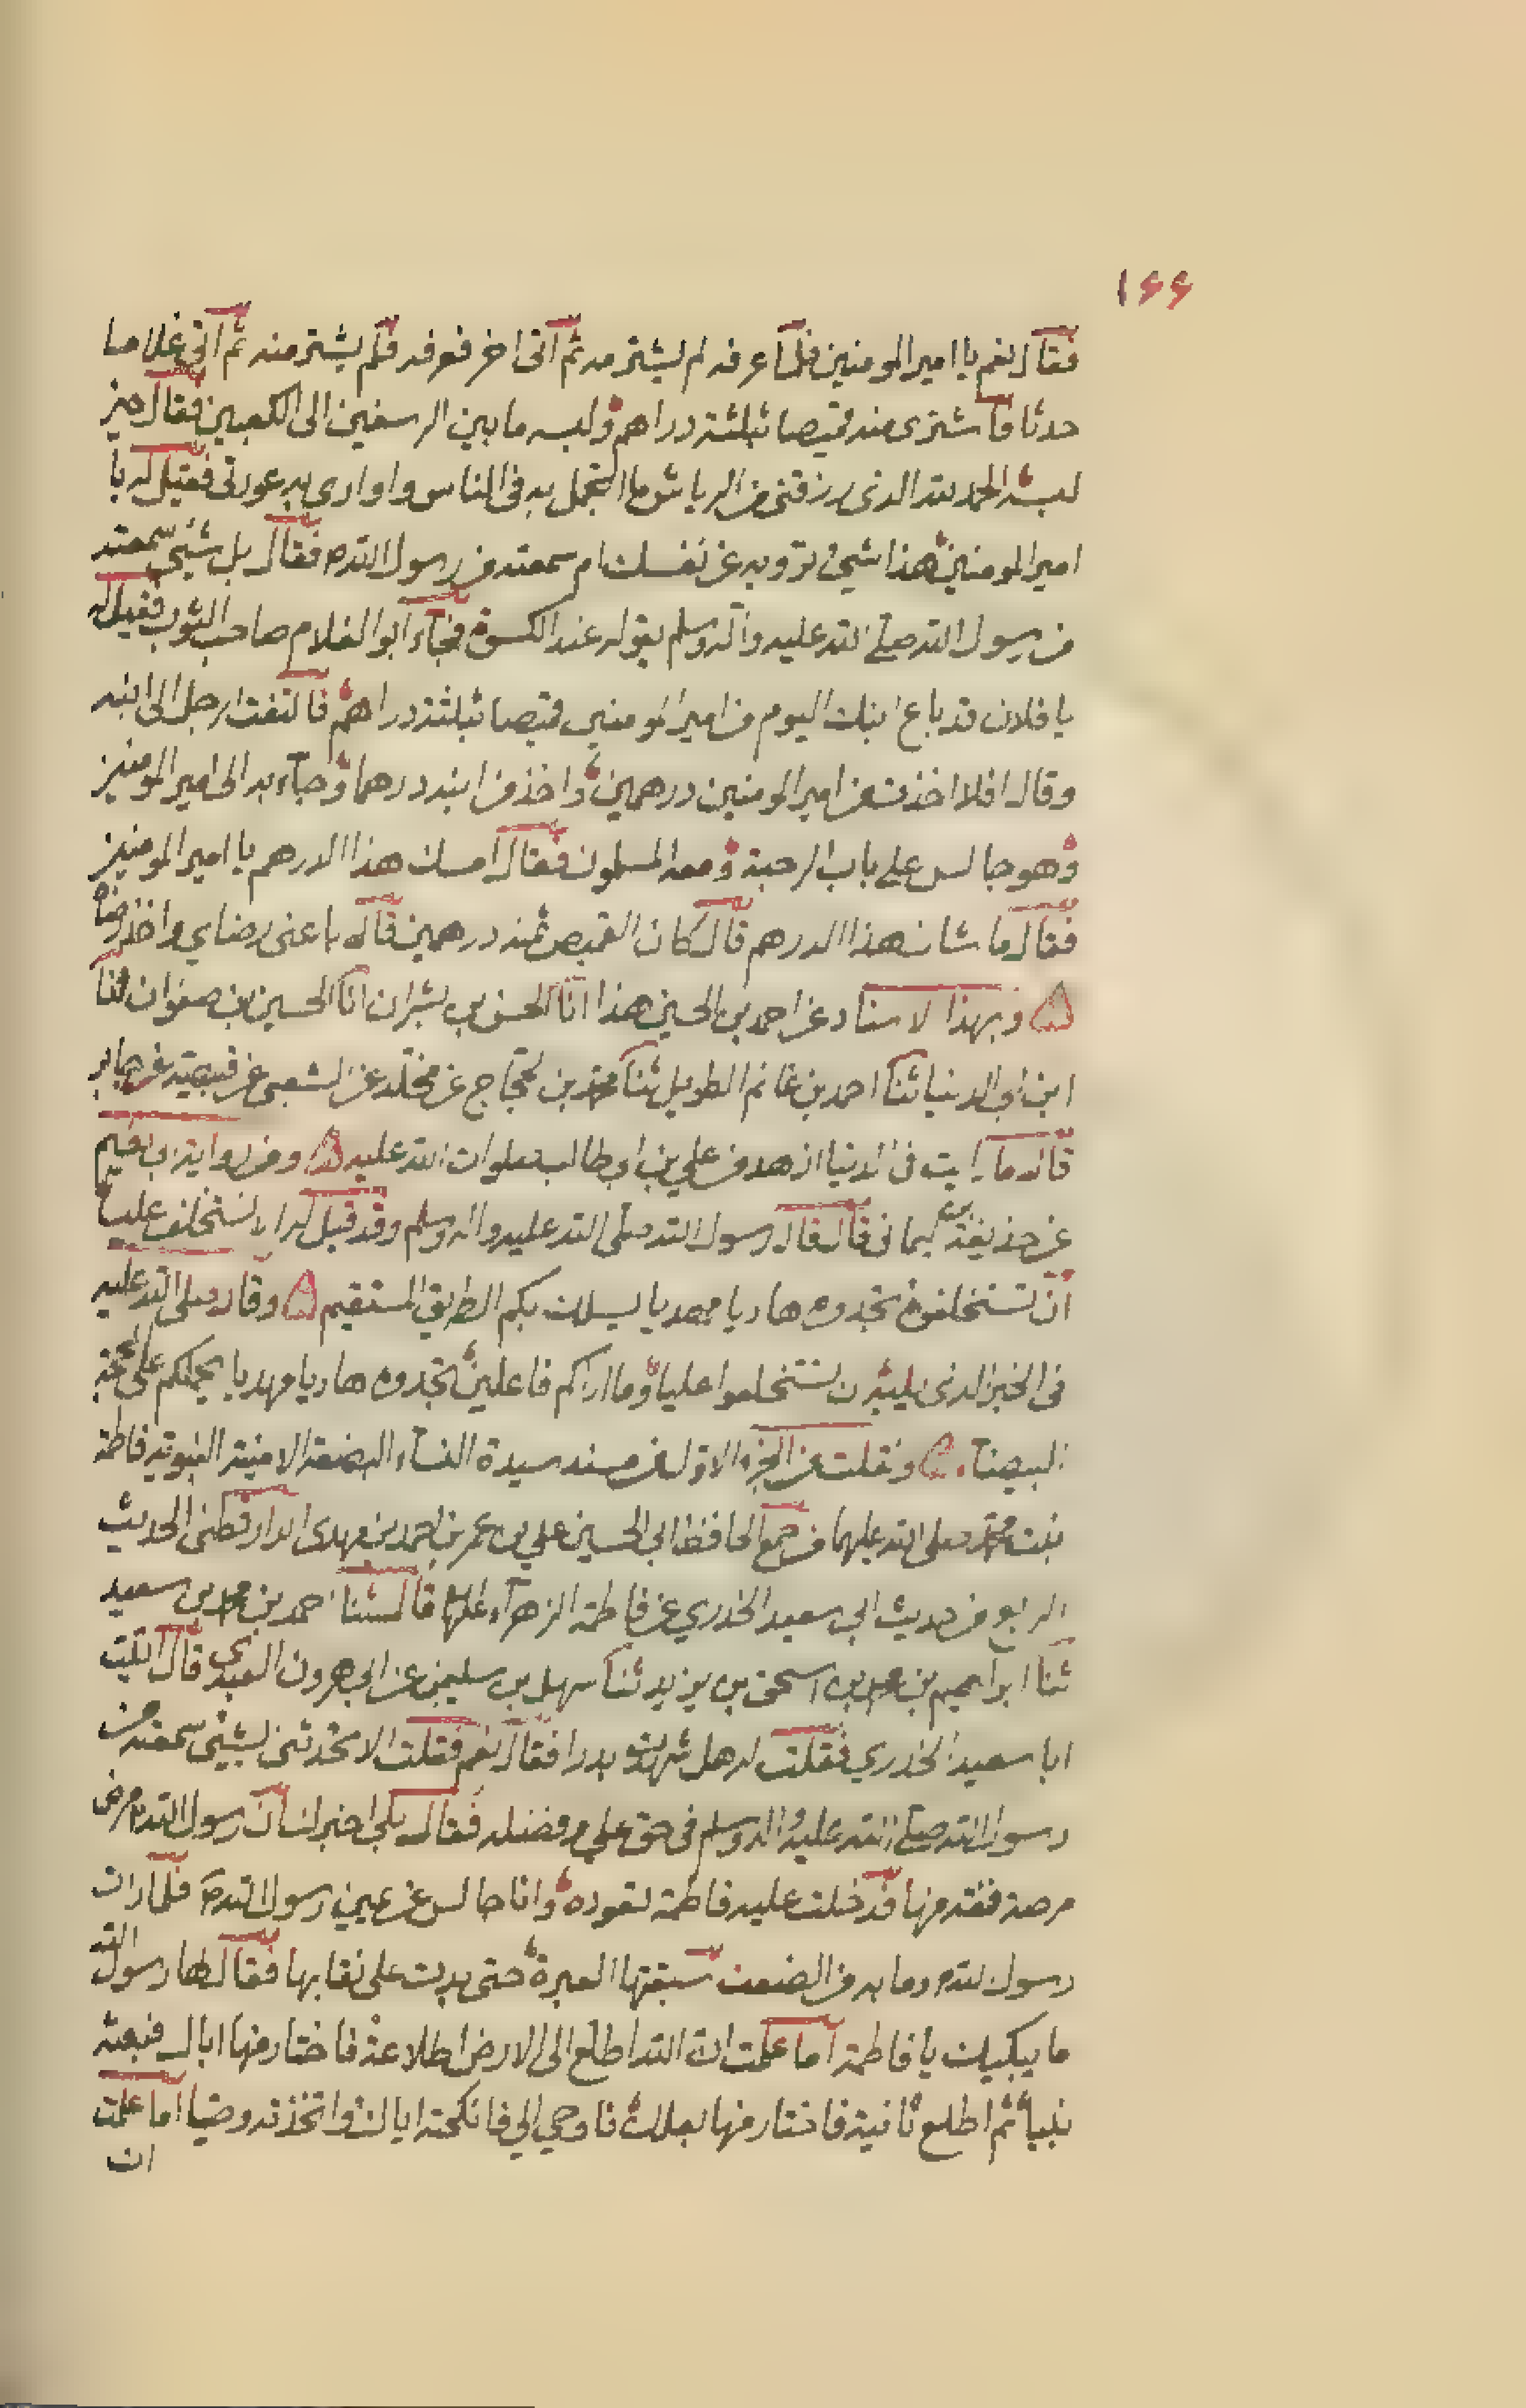 ١٦٦
فقال نعم يا امير المومنين فلما عرفه لم يشتر منه ثم اتى اخر فعرفه فلم يشتر منه ثم اتى غلاما
حدثا فاشترى منه قميصا بثلثة دراهم ولبسه ما بين الرسغين الى الكعبين فقال حين
لبسه الحمد لله الذى رزقنى من الرياش ما اتجمل به فى الناس واوارى به عورتى فقيل له يا
امير المومنين هذا شيئ ترويه عن نفسك ام سمعته من رسول الله ص فقال بل شيئ سمعته
من رسول الله صلى الله عليه وآله وسلم يقوله عند الكسوة فجآء ابو الغلام صاحب الثوب فقيل له
يا فلان قد باع ابنك اليوم من امير المومنين قميصا بثلثة دراهم فالتفت الرجل الى ابنه
وقال افلا اخذت من امير المومنين درهمين واخذ من ابنه درهما وجآء به الى امير المومنين
وهو جالس على باب الرحبة ومعه المسلمون فقال امسك هذا الدرهم يا امير المومنين
فقال ما شان هذا الدرهم قال كان القميص ثمنه درهمين قال باعنى رضاي واخذ رضاه
وبهذا الاسناد عن احمد بن الحسين هذا انا الحسن بن بشران انا الحسين بن صفوان ثنا
ابن ابى الدنيا ثنا احمد بن غانم الطويل ثنا محمد بن الحجاج عن مخلد عن الشعبى عن قبيصة عن جابر
قال ما رايت فى الدنيا ازهد من علي بن ابى طالب صلوات الله عليه ومن رواية ابى نعيم
عن حذيفة بن اليمانى قال قال رسول الله صلى الله عليه واله وسلم وقد قيل له الا نستخلف عليا
ان تستخلفوه تجدوه هاديا مهديا يسلك بكم الطريق المستقيم وقال صلى الله عليه
فى الخبر الذى يليه ان تستخلفوا عليا وما اراكم فاعلين تجدوه هاديا مهديا يحملكم على المحجة
البيضآء ونقلت من الجزء الاول من مسند سيدة النسآء البضعة الامينة النبوية فاطمة
بنت محمد صلى الله عليهما من جمع الحافظ ابى الحسين علي بن عمر بن احمد بن مهدى الدارقطنى الحديث
الرابع من حديث ابى سعيد الخدري عن فاطمة الزهرآء عليها قال ثنا احمد بن محمد بن سعيد
ثنا ابراهيم بن محمد بن اسحق بن يزيد ثنا سهل بن سليمن عن ابى هرون العبدى قال اتيت
ابا سعيد الخدري فقلت له هل شهدت بدرا فقال نعم فقلت الا تحدثنى بشيئ سمعته من
رسول الله صلى الله عليه واله وسلم فى حق علي وفضله فقال بلى اخبرك ان رسول الله ص مرض
مرضة فنقه منها فدخلت عليه فاطمة تعوده وانا جالس عن يمين رسول الله ص فلما رات
رسول الله ص وما به من الضعف سبقتها العبرة حتى بدت على نقابها فقال لها رسول الله
ما يبكيك يا فاطمة اما علمت ان الله اطلع الى الارض اطلاعة فاختار منها اباك فبعثه
نبيا ثم اطلع ثانية فاختار منها بعلك فاوحي الي فانكحته اياك واتخذته وصيا اما علمت
ان